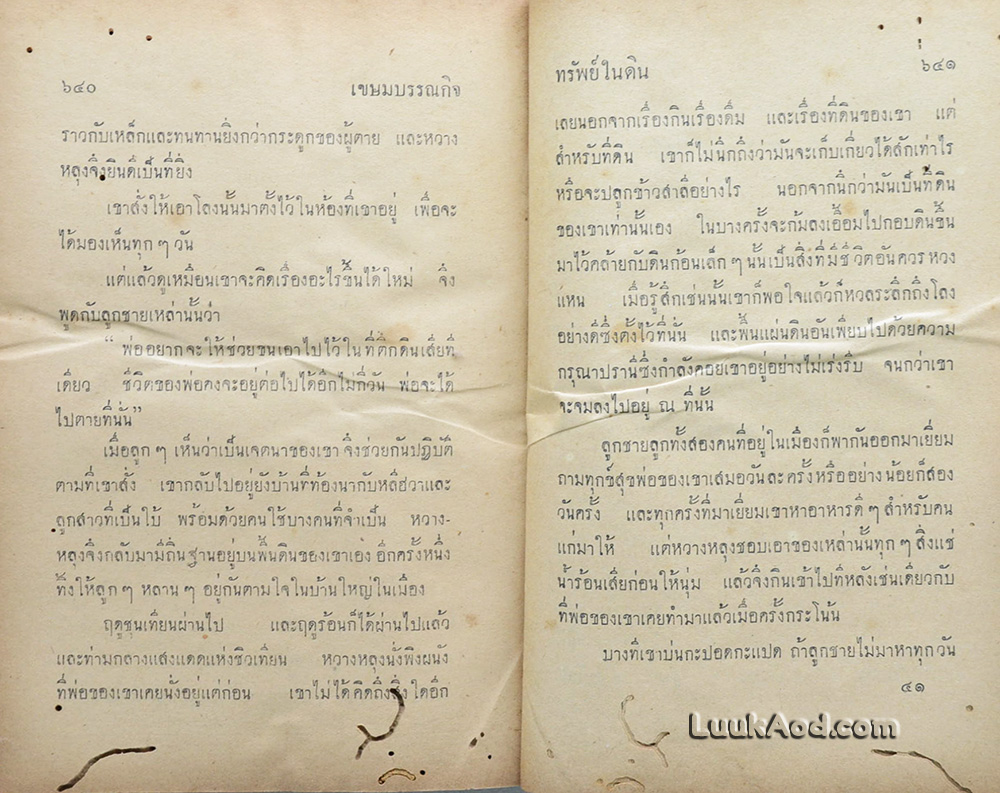 ๖๔๐ เขษมบรรณกิจ
ราวกับเหล็กและทนทานยิ่งกว่ากระดูกของผู้ตาย และหวาง
หลุงจึงยินดีเป็นที่ยิ่ง
เขาสั่งให้เอาโลงนั้นมาตั้งไว้ในห้องที่เขาอยู่ เพื่อจะ
ได้มองเห็นทุก ๆ วัน
แต่แล้วดูเหมือนเขาจะคิดเรื่องอะไรขึ้นได้ใหม่ จึง
พูดกับลูกชายเหล่านั้นว่า
“ พ่ออยากจะให้ช่วยขนเอาไปไว้ในที่ตึกดินเสียที
เดียว ชีวิตของพ่อคงจะอยู่ต่อไปได้อีกไม่กี่วัน พ่อจะได้
ไปตายที่นั่น”
เมื่อลูก ๆ เห็นว่าเป็นเจตนาของเขา จึงช่วยกันปฏิบัติ
ตามที่เขาสั่ง เขากลับไปอยู่ยังบ้านที่ท้องนากับหลีฮวาและ
ลูกสาวที่เป็นใบ้ พร้อมด้วยคนใช้บางคนที่จำเป็น หวาง-
หลุงจึงกลับมามีถิ่นฐานอยู่บนพื้นดินของเขาเอง อีกครั้งหนึ่ง
ทิ้งให้ลูก ๆ หลาน ๆ อยู่กันตามใจในบ้านใหญ่ในเมือง
ฤดูชุนเทียนผ่านไป และฤดูร้อนก็ได้ผ่านไปแล้ว
และท่ามกลางแสงแดดแห่งชิวเทียน หวางหลุงนั่งพิงผนัง
ที่พ่อของเขาเคยนั่งอยู่แต่ก่อน เขาไม่ได้คิดถึงสิ่งใดอีก
ทรัพย์ในดิน ๖๔๑
เลยนอกจากเรื่องกินเรื่องดื่ม และเรื่องที่ดินของเขา แต่
สำหรับที่ดิน เขาก็ไม่นึกถึงว่ามันจะเก็บเกี่ยวได้สักเท่าไร
หรือจะปลูกข้าวสาลีอย่างไร นอกจากนึกว่ามันเป็นที่ดิน
ของเขาเท่านั้นเอง ในบางครั้งจะก้มลงเอื้อมไปกอบดินขึ้น
มาไว้คล้ายกับดินก้อนเล็ก ๆ นั้นเป็นสิ่งที่มีชีวิตอันควรหวง
แหน เมื่อรู้สึกเช่นนั้นเขาก็พอใจแล้วก็หวลระลึกถึงโลง
อย่างดีซึ่งตั้งไว้ที่นั่น และพื้นแผ่นดินอันเพียบไปด้วยความ
กรุณาปรานีซึ่งกำลังคอยเขาอยู่อย่างไม่เร่งรีบ จนกว่าเขา
จะจมลงไปอยู่ ณ ที่นั้น
ลูกชายลูกทั้งสองคนที่อยู่ในเมืองก็พากันออกมาเยี่ยม
ถามทุกข์สุขพ่อของเขาเสมอวันละครั้งหรืออย่างน้อยก็สอง
วันครั้ง และทุกครั้งที่มาเยี่ยมเขาหาอาหารดี ๆ สำหรับคน
แก่มาให้ แต่หวางหลุงชอบเอาของเหล่านั้นทุก ๆ สิ่งแช่
น้ำร้อนเสียก่อนให้นุ่ม แล้วจึงกินเข้าไปทีหลังเช่นเดียวกับ
ที่พ่อของเขาเคยทำมาแล้วเมื่อครั้งกระโน้น
บางทีเขาบ่นกะปอดกะแปด ถ้าลูกชายไม่มาหาทุกวัน
๔๑
LuukAod.com